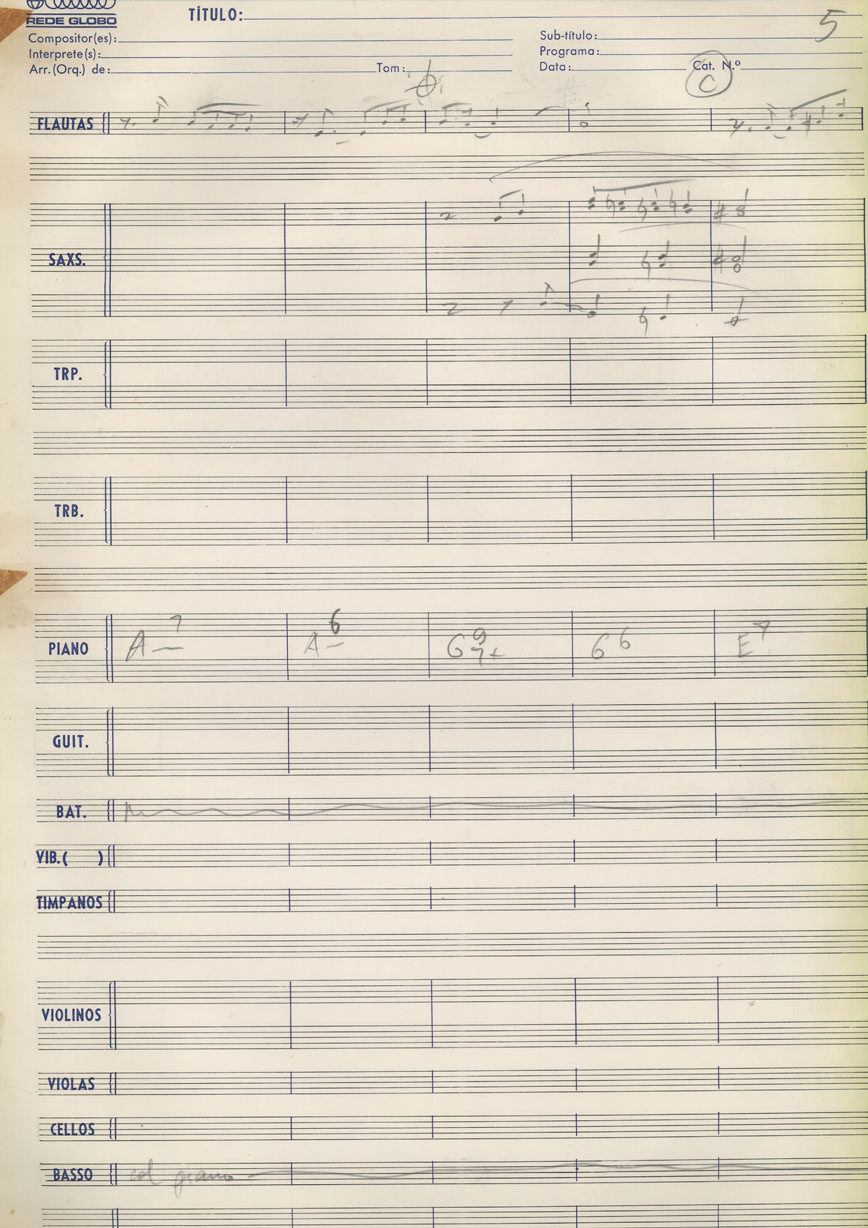 REDE GLOBO
TÍTULO:
5
Compositor(es):
Sub-título:
Interprete(s):
Programa:
Arr. (Orq.) de:
Tom:
Data:
Cat. N.º
C
FLAUTAS
SAXS.
TRP.
TRB.
PIANO
A–7
A–6
G 9 7+
G6
E7
GUIT.
BAT.
VIB.( )
TIMPANOS
VIOLINOS
VIOLAS
CELLOS
BASSO
col piano